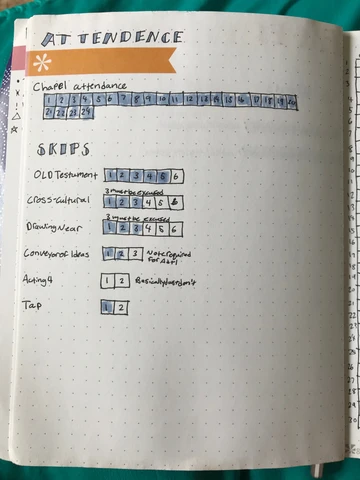 ATTENDENCE
Chapel attendance
1 2 3 4 5 6 7 8 9 10 11 12 13 14 15 16 17 18 19 20
21 22 23 24
SKIPS
OLD Testament 1 2 3 4 5 6
3 must be excused
Cross-cultural 1 2 3 4 5 6
3 must be excused
Drawing Near 1 2 3 4 5 6
Conveyor of Ideas 1 2 3 Not required
for A or 1
Acting 4 1 2 Basically dont
Tap 1 2